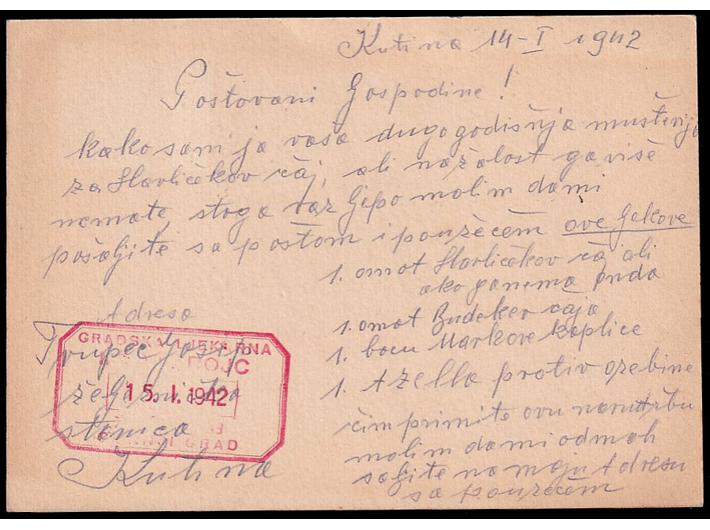 Kutina 14-I 1942
Poštovani Gospodine!
kako sam ja vaša dugogodišnja mušterija
za Havličekov čaj, ali nažalost ga više
nemate, stoga vas ljepo molim dami
pošaljite sa poštom i pouzećem ove ljekove
1. omot Havličekov čaj ali
ako ga nema onda
1. omot Budakov čaja
1. bocu Markove kaplice
1. Azella protiv ozebine
čim primite ovu narudžbu
molim dami odmah
šaljite na moju Adresu
sa pouzećem
Adresa
Trupec Josip
željeznička
stanica
Kutina
GRADSKA LJEKARNA
15. I. 1942
GRAD